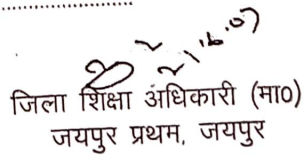 जिला शिक्षा अधिकारी (मा0)
जयपुर प्रथम, जयपुर